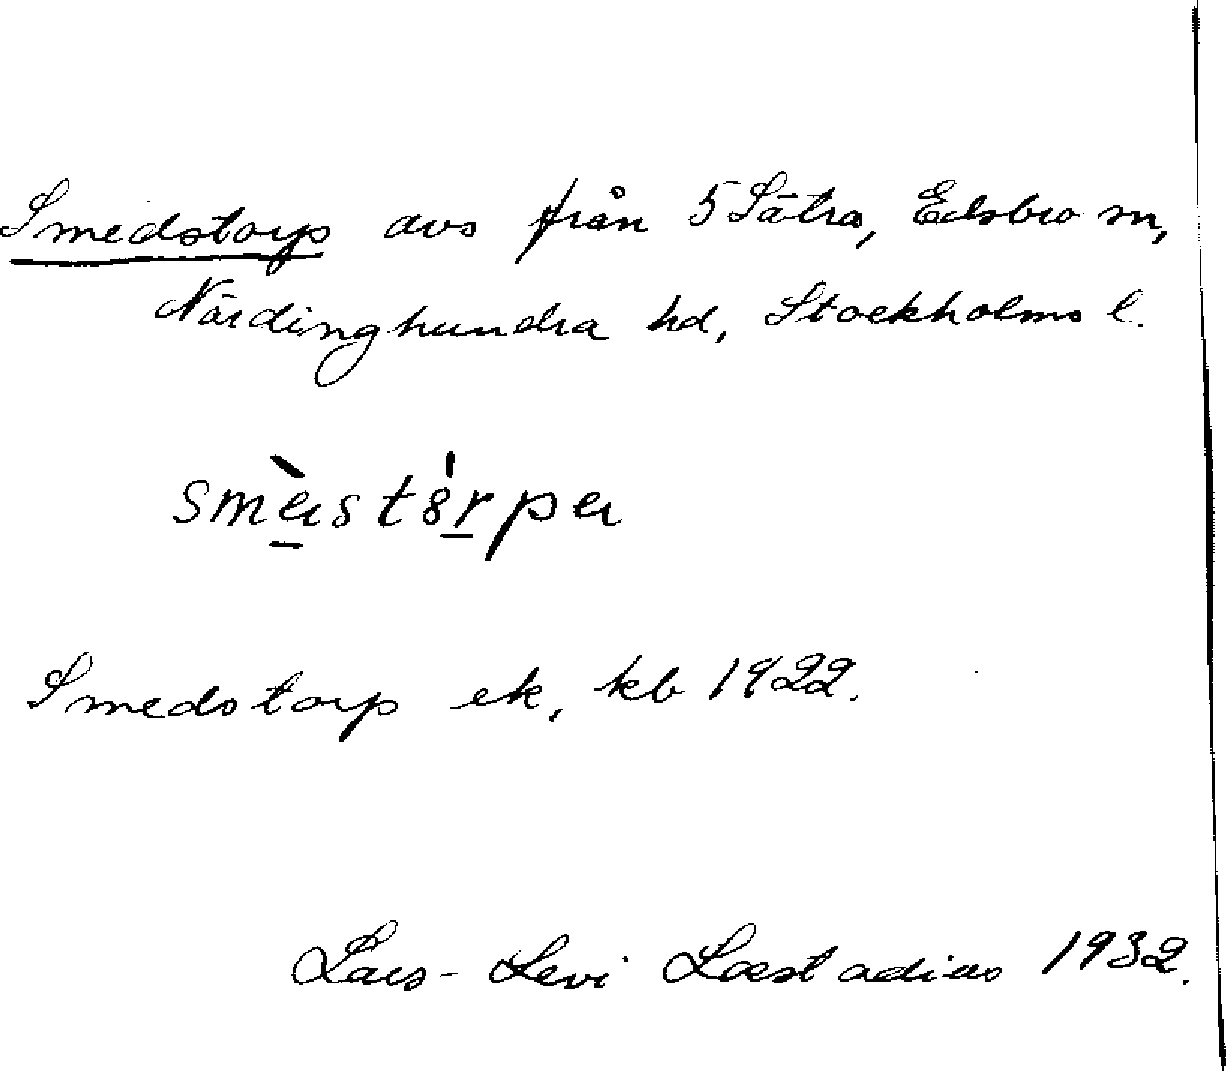 Smedstorp avs från 5 Sätra, Edsbro sn,
Närdinghundra hd, Stockholms l.
smὲ̱stȯr̲pa
Smedstorp ek, kb 1922.
Lars-Levi Læstadius 1932.